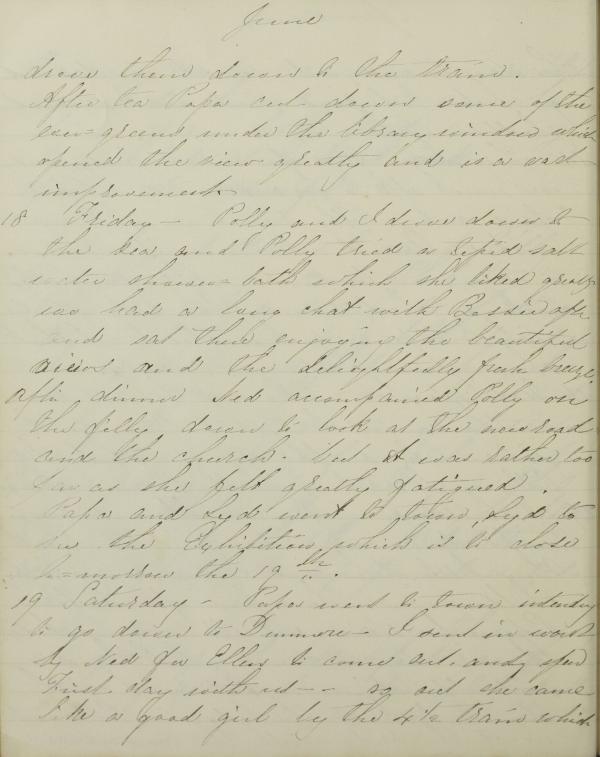 June
drove them down to the train.
After tea Papa cut down some of the
ever=greens under the library window which
opened the view greatly and is a vast
improvement
18 Friday - Polly and I drove down to
the sea and Polly tried a tepid salt
water shower=bath which she liked greatly
we had a long chat with Bessie after
and sat there enjoying the beautiful
views and the delightfully fresh breeze.
After dinner Ned accompanied Polly on
the filly down to look at the new road
and the church. but it was rather too
far as she felt greatly fatigued.
Papa and Lyd went to town, Lyd to
see the Exhibition which is to close
to=morrow the 19th.
19 Saturday - Papa went to town intending
to go down to Dunmore - I sent in word
by Ned for Ellen to come out. and spend
First day with us -- so out she came
like a good girl by the 4½ train which